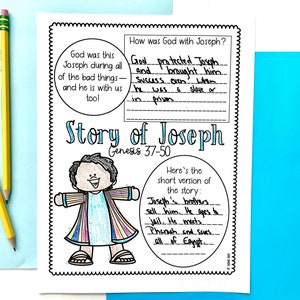 God was this
Joseph during all
of the bad things—
and he is with us
too!
How was God with Joseph?
God protected Joseph
and brought him
success even when
he was a slave or
in prison
Story of Joseph
Genesis 37-50
Here's the
short version of
the story:
Joseph's brothers
sell him. He goes to
jail. He meets
Pharaoh and saves
all of Egypt.